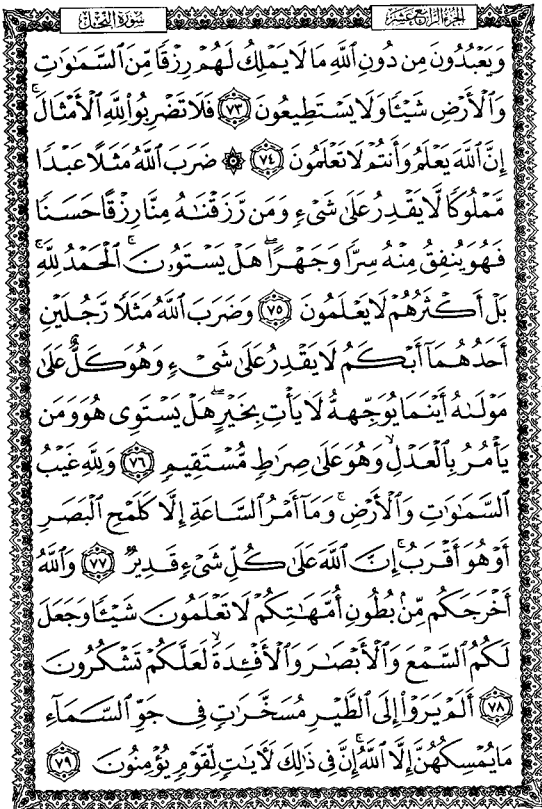 سُورَةُ النَّحْلِ
الجُزْءُ الرَّابِعَ عَشَرَ
وَيَعْبُدُونَ مِن دُونِ ٱللَّهِ مَا لَا يَمْلِكُ لَهُمْ رِزْقًا مِّنَ ٱلسَّمَٰوَٰتِ
وَٱلْأَرْضِ شَيْـًٔا وَلَا يَسْتَطِيعُونَ ٧٣ فَلَا تَضْرِبُوا۟ لِلَّهِ ٱلْأَمْثَالَ ۚ
إِنَّ ٱللَّهَ يَعْلَمُ وَأَنتُمْ لَا تَعْلَمُونَ ٧٤ ۞ ضَرَبَ ٱللَّهُ مَثَلًا عَبْدًا
مَّمْلُوكًا لَّا يَقْدِرُ عَلَىٰ شَىْءٍ وَمَن رَّزَقْنَٰهُ مِنَّا رِزْقًا حَسَنًا
فَهُوَ يُنفِقُ مِنْهُ سِرًّا وَجَهْرًا ۖ هَلْ يَسْتَوُۥنَ ۚ ٱلْحَمْدُ لِلَّهِ ۚ
بَلْ أَكْثَرُهُمْ لَا يَعْلَمُونَ ٧٥ وَضَرَبَ ٱللَّهُ مَثَلًا رَّجُلَيْنِ
أَحَدُهُمَآ أَبْكَمُ لَا يَقْدِرُ عَلَىٰ شَىْءٍ وَهُوَ كَلٌّ عَلَىٰ
مَوْلَىٰهُ أَيْنَمَا يُوَجِّههُّ لَا يَأْتِ بِخَيْرٍ ۖ هَلْ يَسْتَوِى هُوَ وَمَن
يَأْمُرُ بِٱلْعَدْلِ ۙ وَهُوَ عَلَىٰ صِرَٰطٍ مُّسْتَقِيمٍ ٧٦ وَلِلَّهِ غَيْبُ
ٱلسَّمَٰوَٰتِ وَٱلْأَرْضِ ۚ وَمَآ أَمْرُ ٱلسَّاعَةِ إِلَّا كَلَمْحِ ٱلْبَصَرِ
أَوْ هُوَ أَقْرَبُ ۚ إِنَّ ٱللَّهَ عَلَىٰ كُلِّ شَىْءٍ قَدِيرٌ ٧٧ وَٱللَّهُ
أَخْرَجَكُم مِّنۢ بُطُونِ أُمَّهَٰتِكُمْ لَا تَعْلَمُونَ شَيْـًٔا وَجَعَلَ
لَكُمُ ٱلسَّمْعَ وَٱلْأَبْصَٰرَ وَٱلْأَفْـِٔدَةَ ۙ لَعَلَّكُمْ تَشْكُرُونَ
٧٨ أَلَمْ يَرَوْا۟ إِلَى ٱلطَّيْرِ مُسَخَّرَٰتٍ فِى جَوِّ ٱلسَّمَآءِ
مَا يُمْسِكُهُنَّ إِلَّا ٱللَّهُ ۗ إِنَّ فِى ذَٰلِكَ لَءَايَٰتٍ لِّقَوْمٍ يُؤْمِنُونَ ٧٩